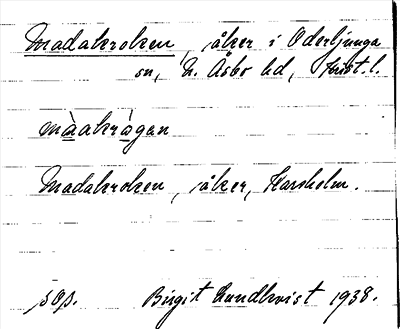 Madakroken, åker i Oderljunga
sn, N. Åsbo hd, Krist. l.
màakrågan
Madakroken, åker, Harsholm.
sop. Birgit Lundkvist 1938.